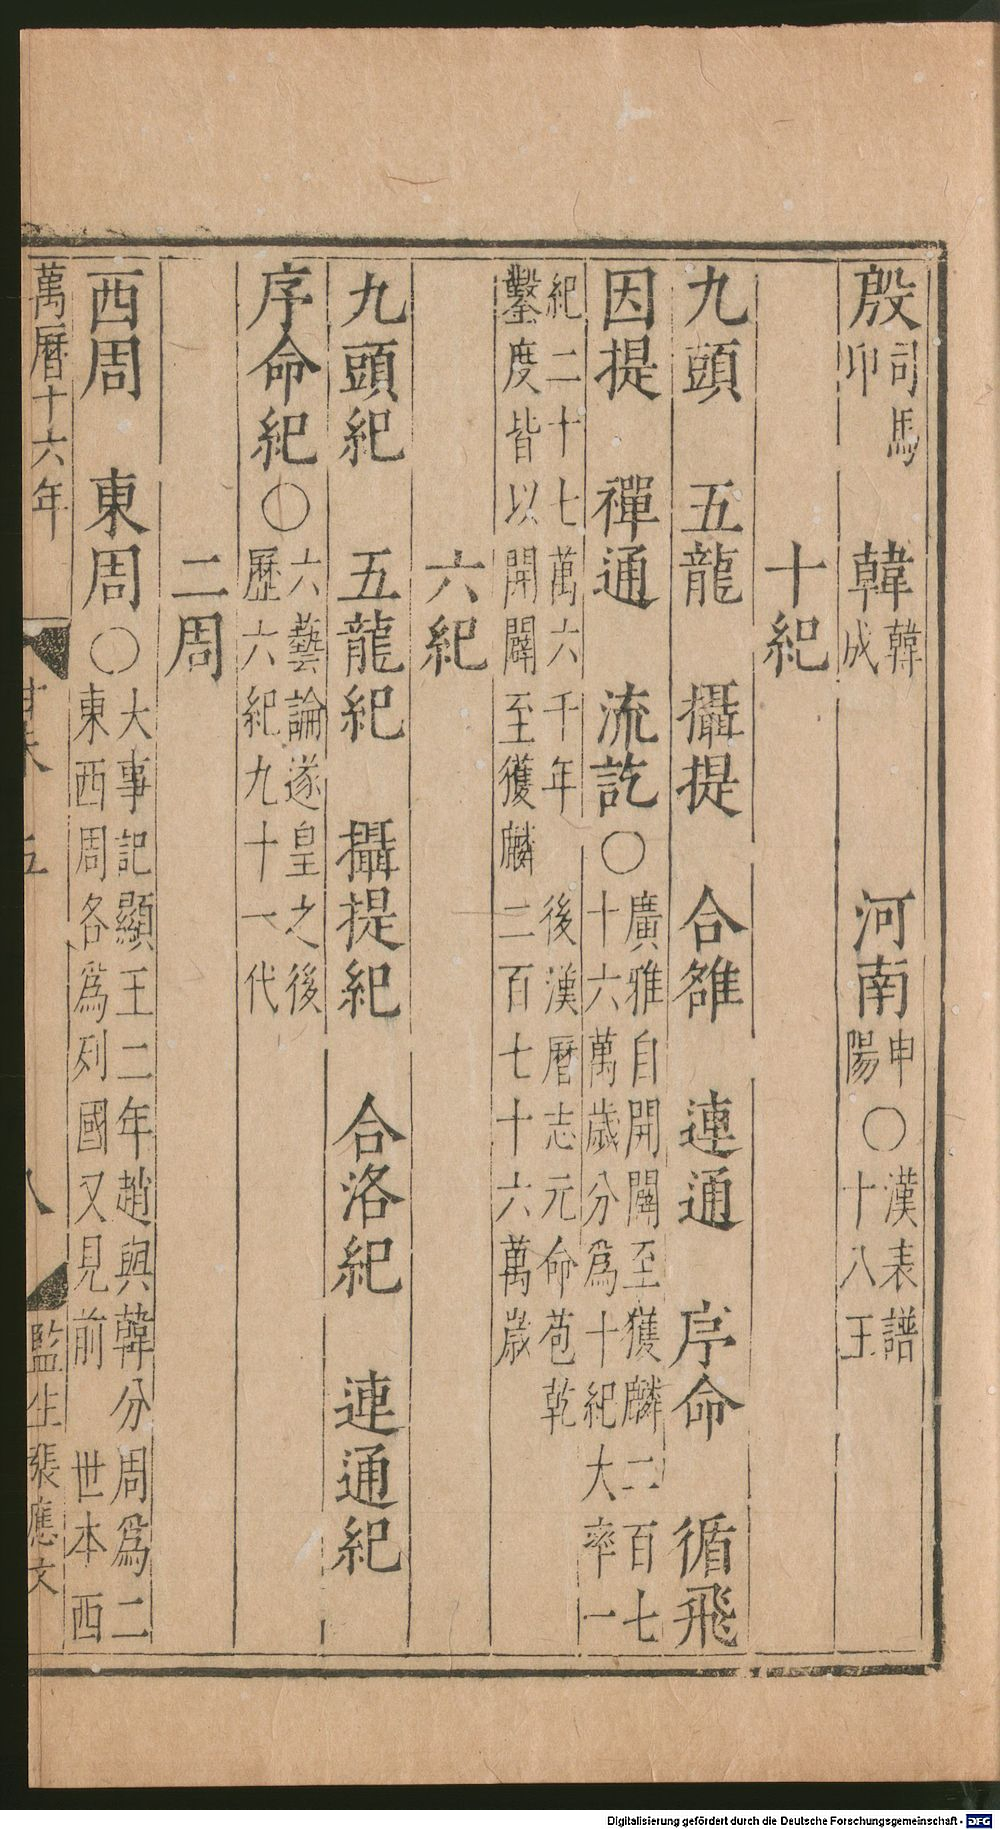 殷司馬卬　韓韓成　河南申陽○漢表譜十八王
十紀
九頭　五龍　攝提　合雒　連通　序命　循飛
因提　禪通　流訖○廣雅自開闢至獲麟二百七十六萬歲分爲十紀大率一
紀二十七萬六千年　後漢曆志元命苞乾鑿度皆以開闢至獲麟二百七十六萬歲
六紀
九頭紀　五龍紀　攝提紀　合洛紀　連通紀
序命紀○六藝論遂皇之後歷六紀九十一代
二周
西周　東周○大事記顯王二年趙與韓分周爲二東西周各爲列國又見前　世本西
萬曆十六年　五　八　監生張應文
Digitalisierung gefördert durch die Deutsche Forschungsgemeinschaft - DFG